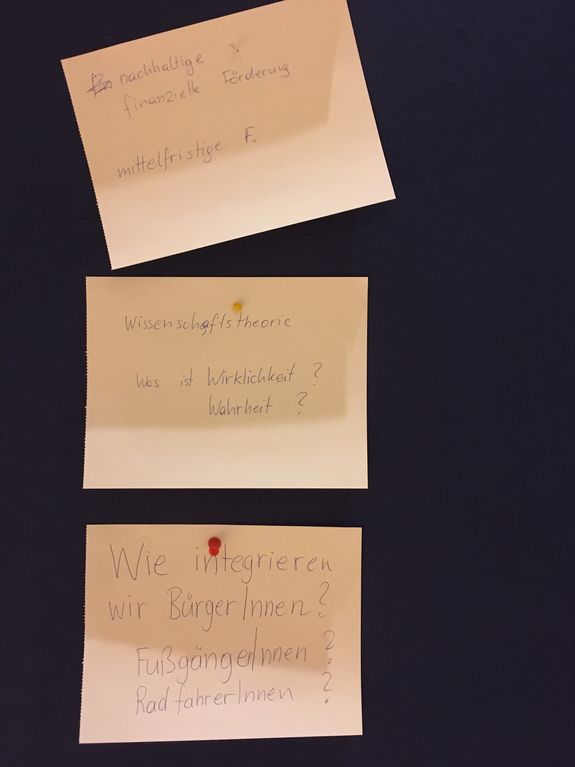 nachhaltige
finanzielle Förderung
mittelfristige F.
Wissenschaftstheorie
Was ist Wirklichkeit ?
Wahrheit ?
Wie integrieren
wir BürgerInnen ?
FußgängerInnen ?
RadfahrerInnen ?